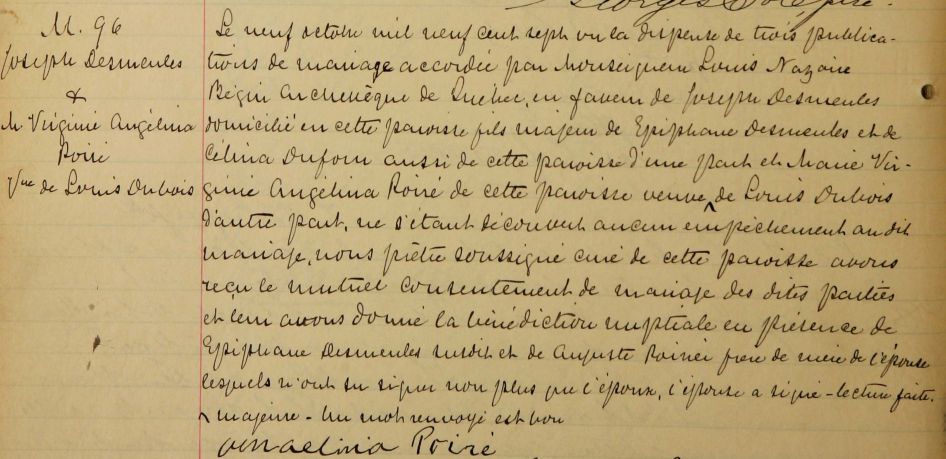 M. 96
Joseph Desmeules
&
M. Virginie Angélina
Poiré
Vve de Louis Dubois
Le neuf octobre mil neuf cent sept vu la dispense de trois publica-
tions de mariage accordée par Monseigneur Louis Nazaire
Bégin Archevêque de Québec, en faveur de Joseph Desmeules
domicilié en cette paroisse fils majeur de Epiphane Desmeules et de
Célina Dufour aussi de cette paroisse d'une part et Marie Vir-
ginie Angélina Poiré de cette paroisse veuve ^ de Louis Dubois
d'autre part, ne s'étant découvert aucun empêchement au dit
mariage, nous prêtre soussigné curé de cette paroisse avons
reçu le mutuel consentement de mariage des dites parties
et leur avons donné la bénédiction nuptiale en présence de
Epiphane Desmeules susdit et de Auguste Poirier frère de mère de l'épouse
lesquels n'ont su signer non plus que l'époux, l'épouse a signé - lecture faite.
^ majeure - Un mot renvoyé est bon
Angelina Poiré